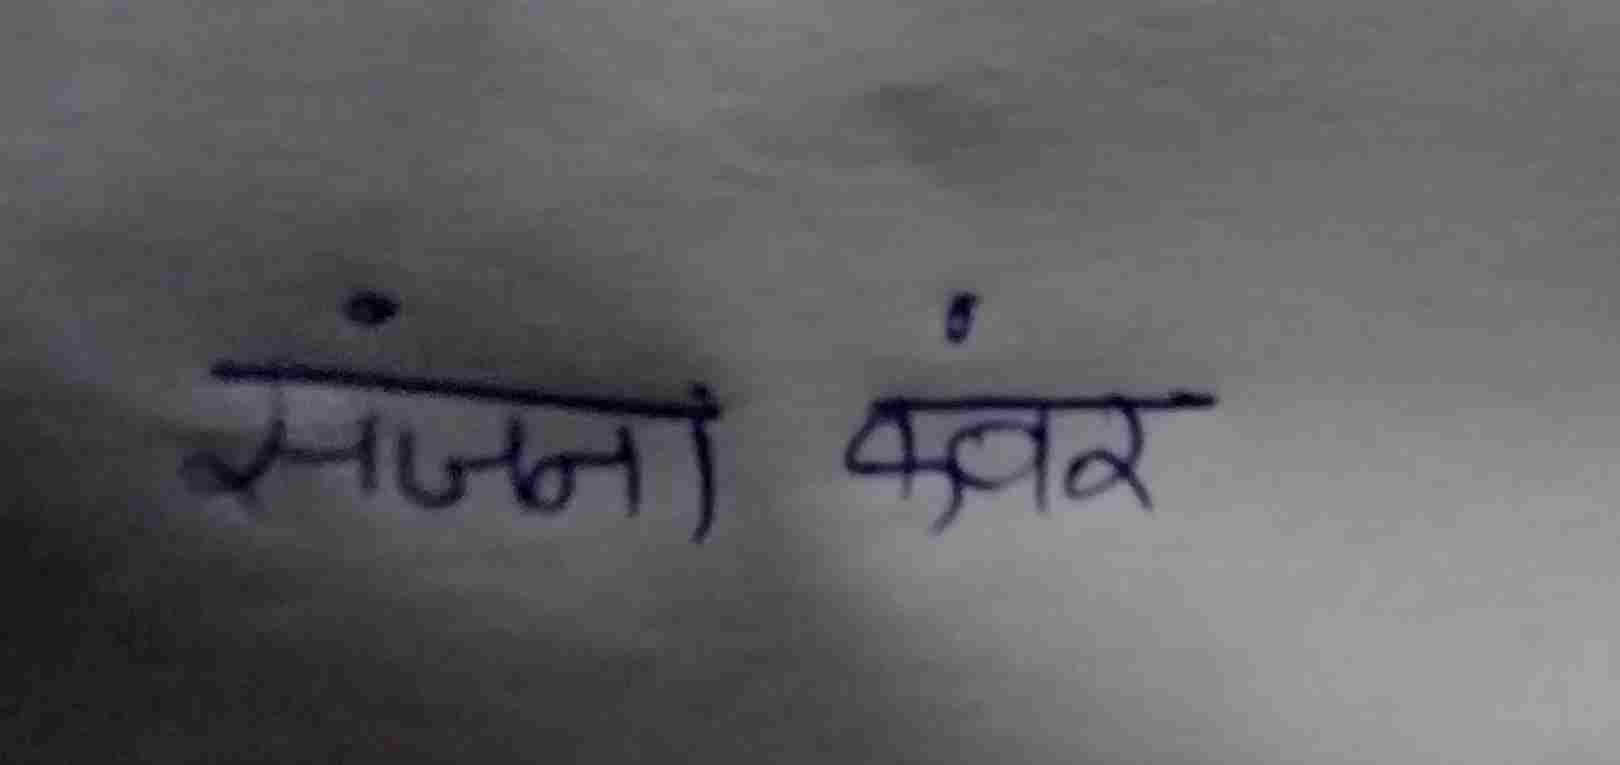 संजना कंवर